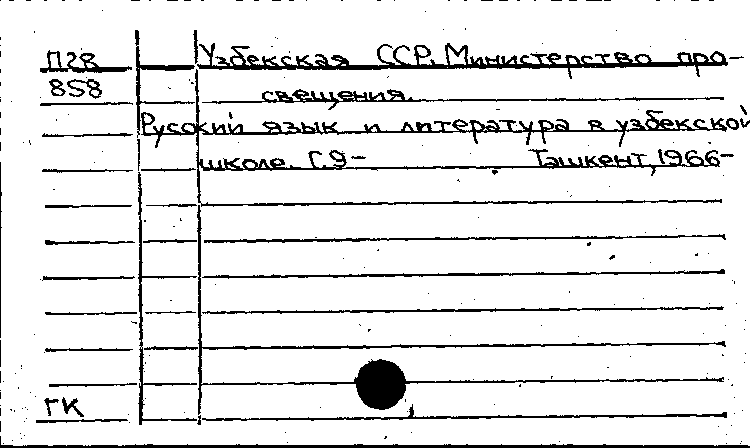 П28 Узбекская ССР. Министерство про-
858 свещения.
Русский язык и литература в узбекской
школе. Г.9- Ташкент, 1966-
ГК